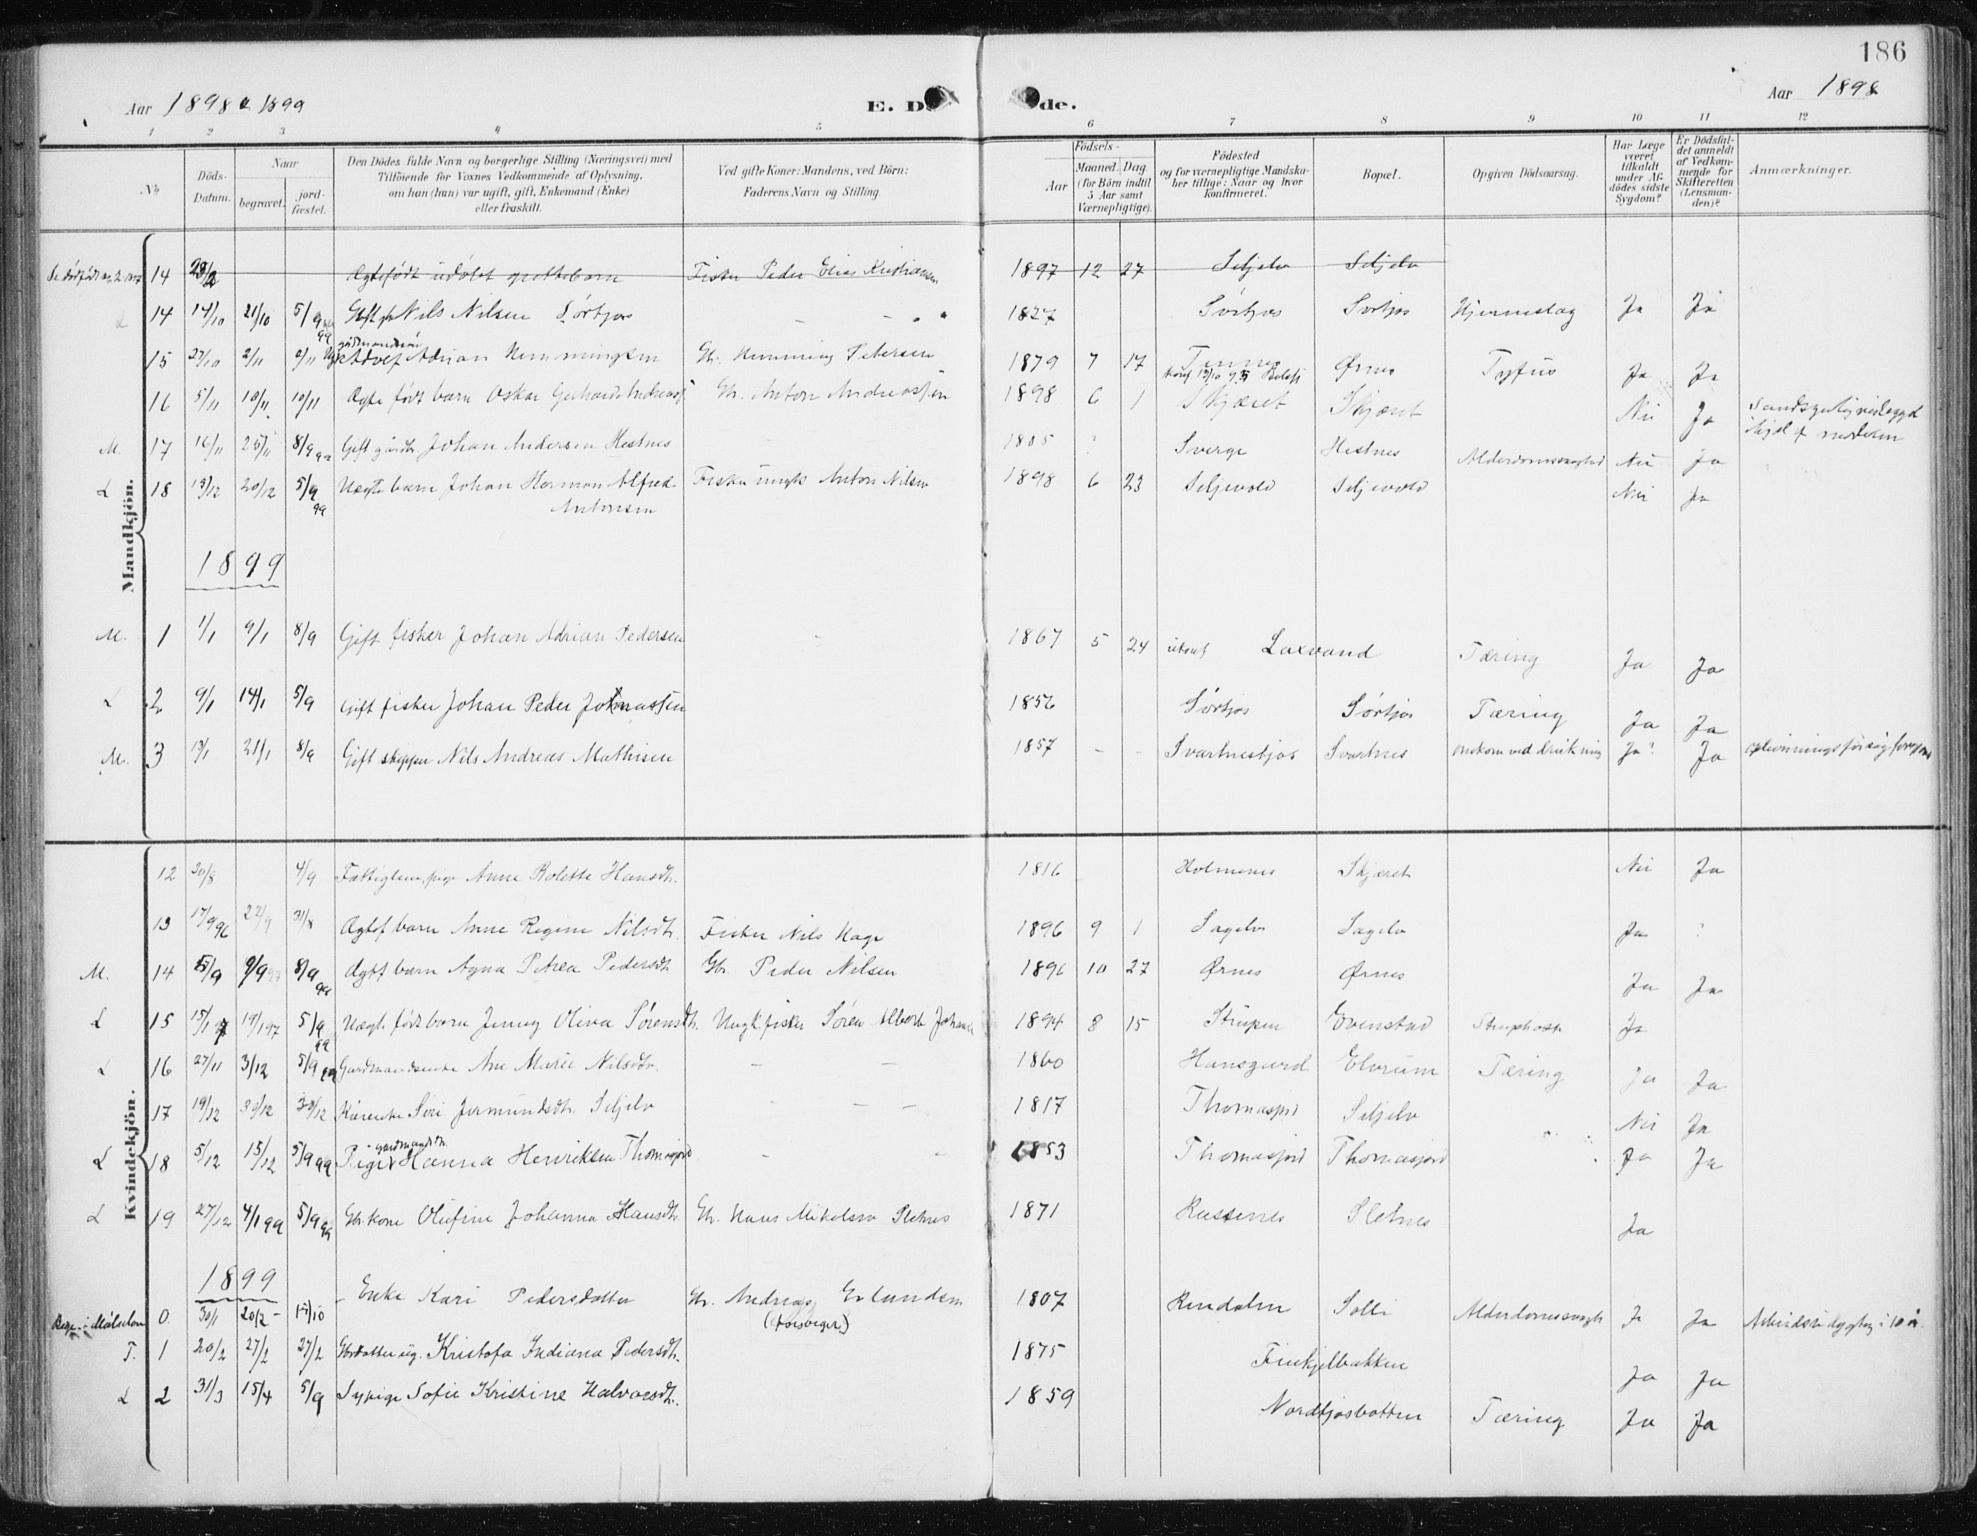 186
Aar 1898 & 1899 E. D de. Aar 1898
1 2 3 4 5 6 7 8 9 10 11 12
No
Døds-Datum.
Naar
begravet. jord-fæstet.
Den Dødes fulde Navn og borgerlige Stilling (Næringsvei) med
Tilføiende for Voxnes Vedkommende af Oplysning,
om han (hun) var ugift, gift, Enkemand (Enke)
eller fraskilt.
Ved gifte Koner: Mandens, ved Børn:
Faderens Navn og Stilling
Fødsels-
Aar
Maaned. Dag.
(for Børn indtil
5 Aar samt
Værnepligtige).
Fødested
og for værnepligtige Mandska-
ber tillige: Naar og hvor
konfirmeret.
Bopæl.
Opgiven Dødsaarsag.
Har Læge
været
tilkaldt
under Af-
dødes sidste
Sygdom?
Er Dødsfal-
det anmeldt
af Vedkom-
mende for
Skifteretten
(Lensman-
den)?
Anmærkninger.
Mandkjön.
14 Ægtefødt udøbt guttebarn Fisker Peder Elias Kristiansen 1897 12 27 Seljelv Seljelv
L 14 14/10 21/10 5/9 99 Nils Nilsen Sørtjos - - 1827 Sørtjos Sørtjos Hjerneslag Ja Ja
15 27/10 2/11 2/11 gårdmandssøn Adolf Adrian Hemmingsen Gbr. Hemming Petersen 1879 7 17 Ørnes Tyfus Ja Ja
16 5/11 10/11 10/11 Ægte født barn Oskar Gerhard Andreass. Gbr. Anton Andreassen 1898 6 1 Skjæret Skjæret Nei Ja
M. 17 16/11 25/11 8/9 99 Gift gårdbr. Johan Andersen Hestnes 1805 Sverge Hestnes Alderdomssvaghed Nei Ja
L 18 13/12 20/12 5/9 99 Uægte barn Johan Herman Alfred Fisker ungk Anton Nilsen 1898 6 23 Seljevold Seljevold Nei Ja
Antonsen
1899
M. 1 1/1 9/1 8/9 Gift fisker Johan Adrian Pedersen 1867 5 24 Laxvand Tæring Ja Ja
L 2 9/1 14/1 5/9 Gift fisker Johan Peder Johnassen 1856 Sørtjos Sørtjos Tæring Ja Ja
M. 3 13/1 21/1 8/9 Gift skipper Nils Andreas Mathisen 1857 - - Svartnestjos Svartnes omkom ved drukning Ja? Ja
Kvindekjön.
12 30/8 4/9 Fattiglem, pige Anne Rolette Hansdtr. 1816 Holmenes Skjæret Nei Ja
13 17/9 96 22/9 31/8 Ægtef barn Anne Regine Nilsdtr. Fisker Nils Hage 1896 9 1 Sagelv Sagelv Ja ?
M. 14 9/9 8/9 99 Ægtf barn Agna Petrea Pedersdtr. Gbr. Peder Nilsen 1896 10 27 Ørnes Ørnes Ja Ja
L 15 15/1 97 19/1 97 5/9 99 Uægte født barn Jenny Oliva Sørensdtr. Ungk. fisker Søren Albert Johans 1894 8 15 Strupen Evenstad Struphoste Ja
L 16 27/11 3/12 5/9 99 Gardmandsenke Ane Marie Nilsdtr. - - 1860 Hansgaard Elvrum Tæring Ja Ja
17 19/12 30/12 30/12 Kårenke Siri Jermundsdtr. Seljelv - - - 1817 Thomasjord Seljelv Nei Ja
L 18 5/12 15/12 5/9 99 Pige gardmandsdtr. Hanna Henriksen Thomasjord - - 1853 Thomasjord Thomasjord Ja Ja
L 19 27/12 4/1 99 5/9 99 Gbr. kone Olufine Johanna Hansdtr. Gbr. Hans Mikelsen Sletnes 1871 Russenes Sletnes Ja
1899
0. 30/1 20/2 - 15/10 Enke Kari Pedersdatter Gbr. Andreas Erlandsen 1807 Rendalen Solli Alderdomssvagh Ja Ja
T. 1 20/2 27/2 27/2 Gbrdatter ug. Kristofa Indiana Pedersdtr. 1875 Finkjelbakken Ja Ja
L 2 31/3 15/4 5/9 Sypige Sofie Kristine Halvorsdtr. 1859 Nordkjosbotten Tæring Ja Ja